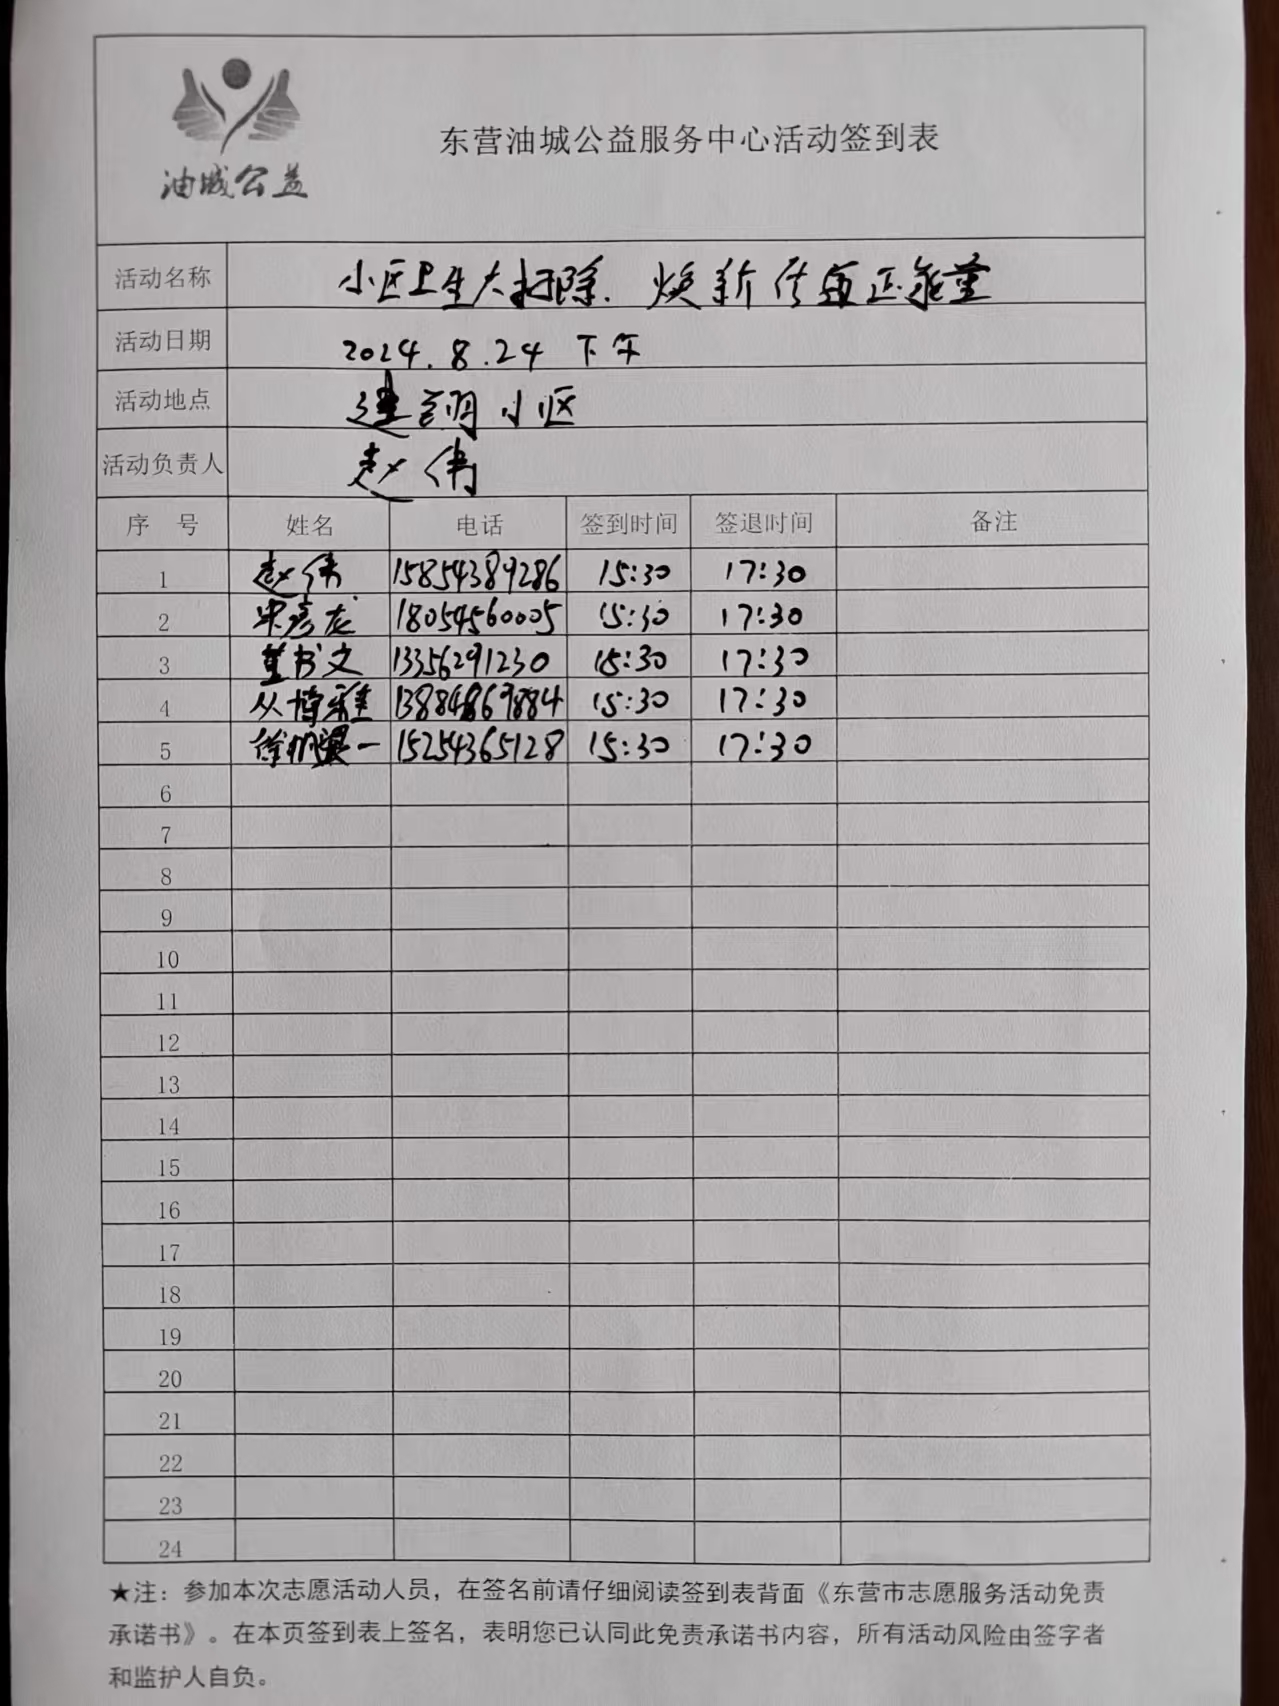 油城公益
东营油城公益服务中心活动签到表
活动名称 小区卫生大扫除.焕新传递正能量
活动日期 2024.8.24 下午
活动地点 小区
活动负责人 赵伟
序 号 姓名 电话 签到时间 签退时间 备注
1 赵伟 15854389286 15:30 17:30
2 彦龙 18054560005 15:30 17:30
3 董书文 13356291230 15:30 17:30
4 从博雅 13884869884 15:30 17:30
5 一 15254365128 15:30 17:30
6
7
8
9
10
11
12
13
14
15
16
17
18
19
20
21
22
23
24
★注：参加本次志愿活动人员，在签名前请仔细阅读签到表背面《东营市志愿服务活动免责
承诺书》。在本页签到表上签名，表明您已认同此免责承诺书内容，所有活动风险由签字者
和监护人自负。